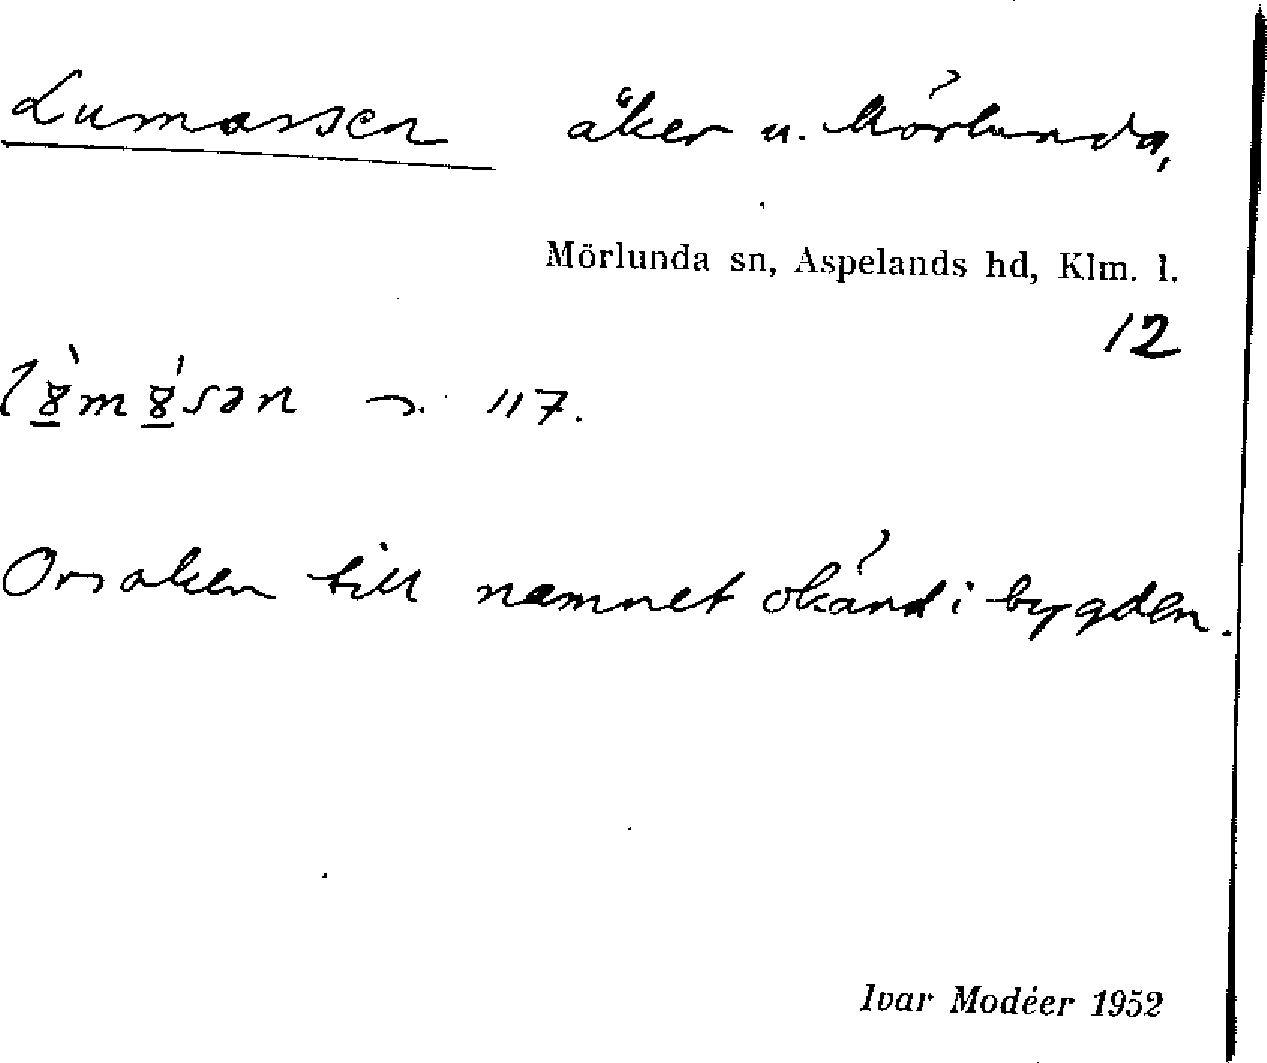 Lumarssen åker u. Mörlunda,
Mörlunda sn, Aspelands hd, Klm. l.
12
117.
Orsaken till namnet okänd i bygden.
Ivar Modéer 1952